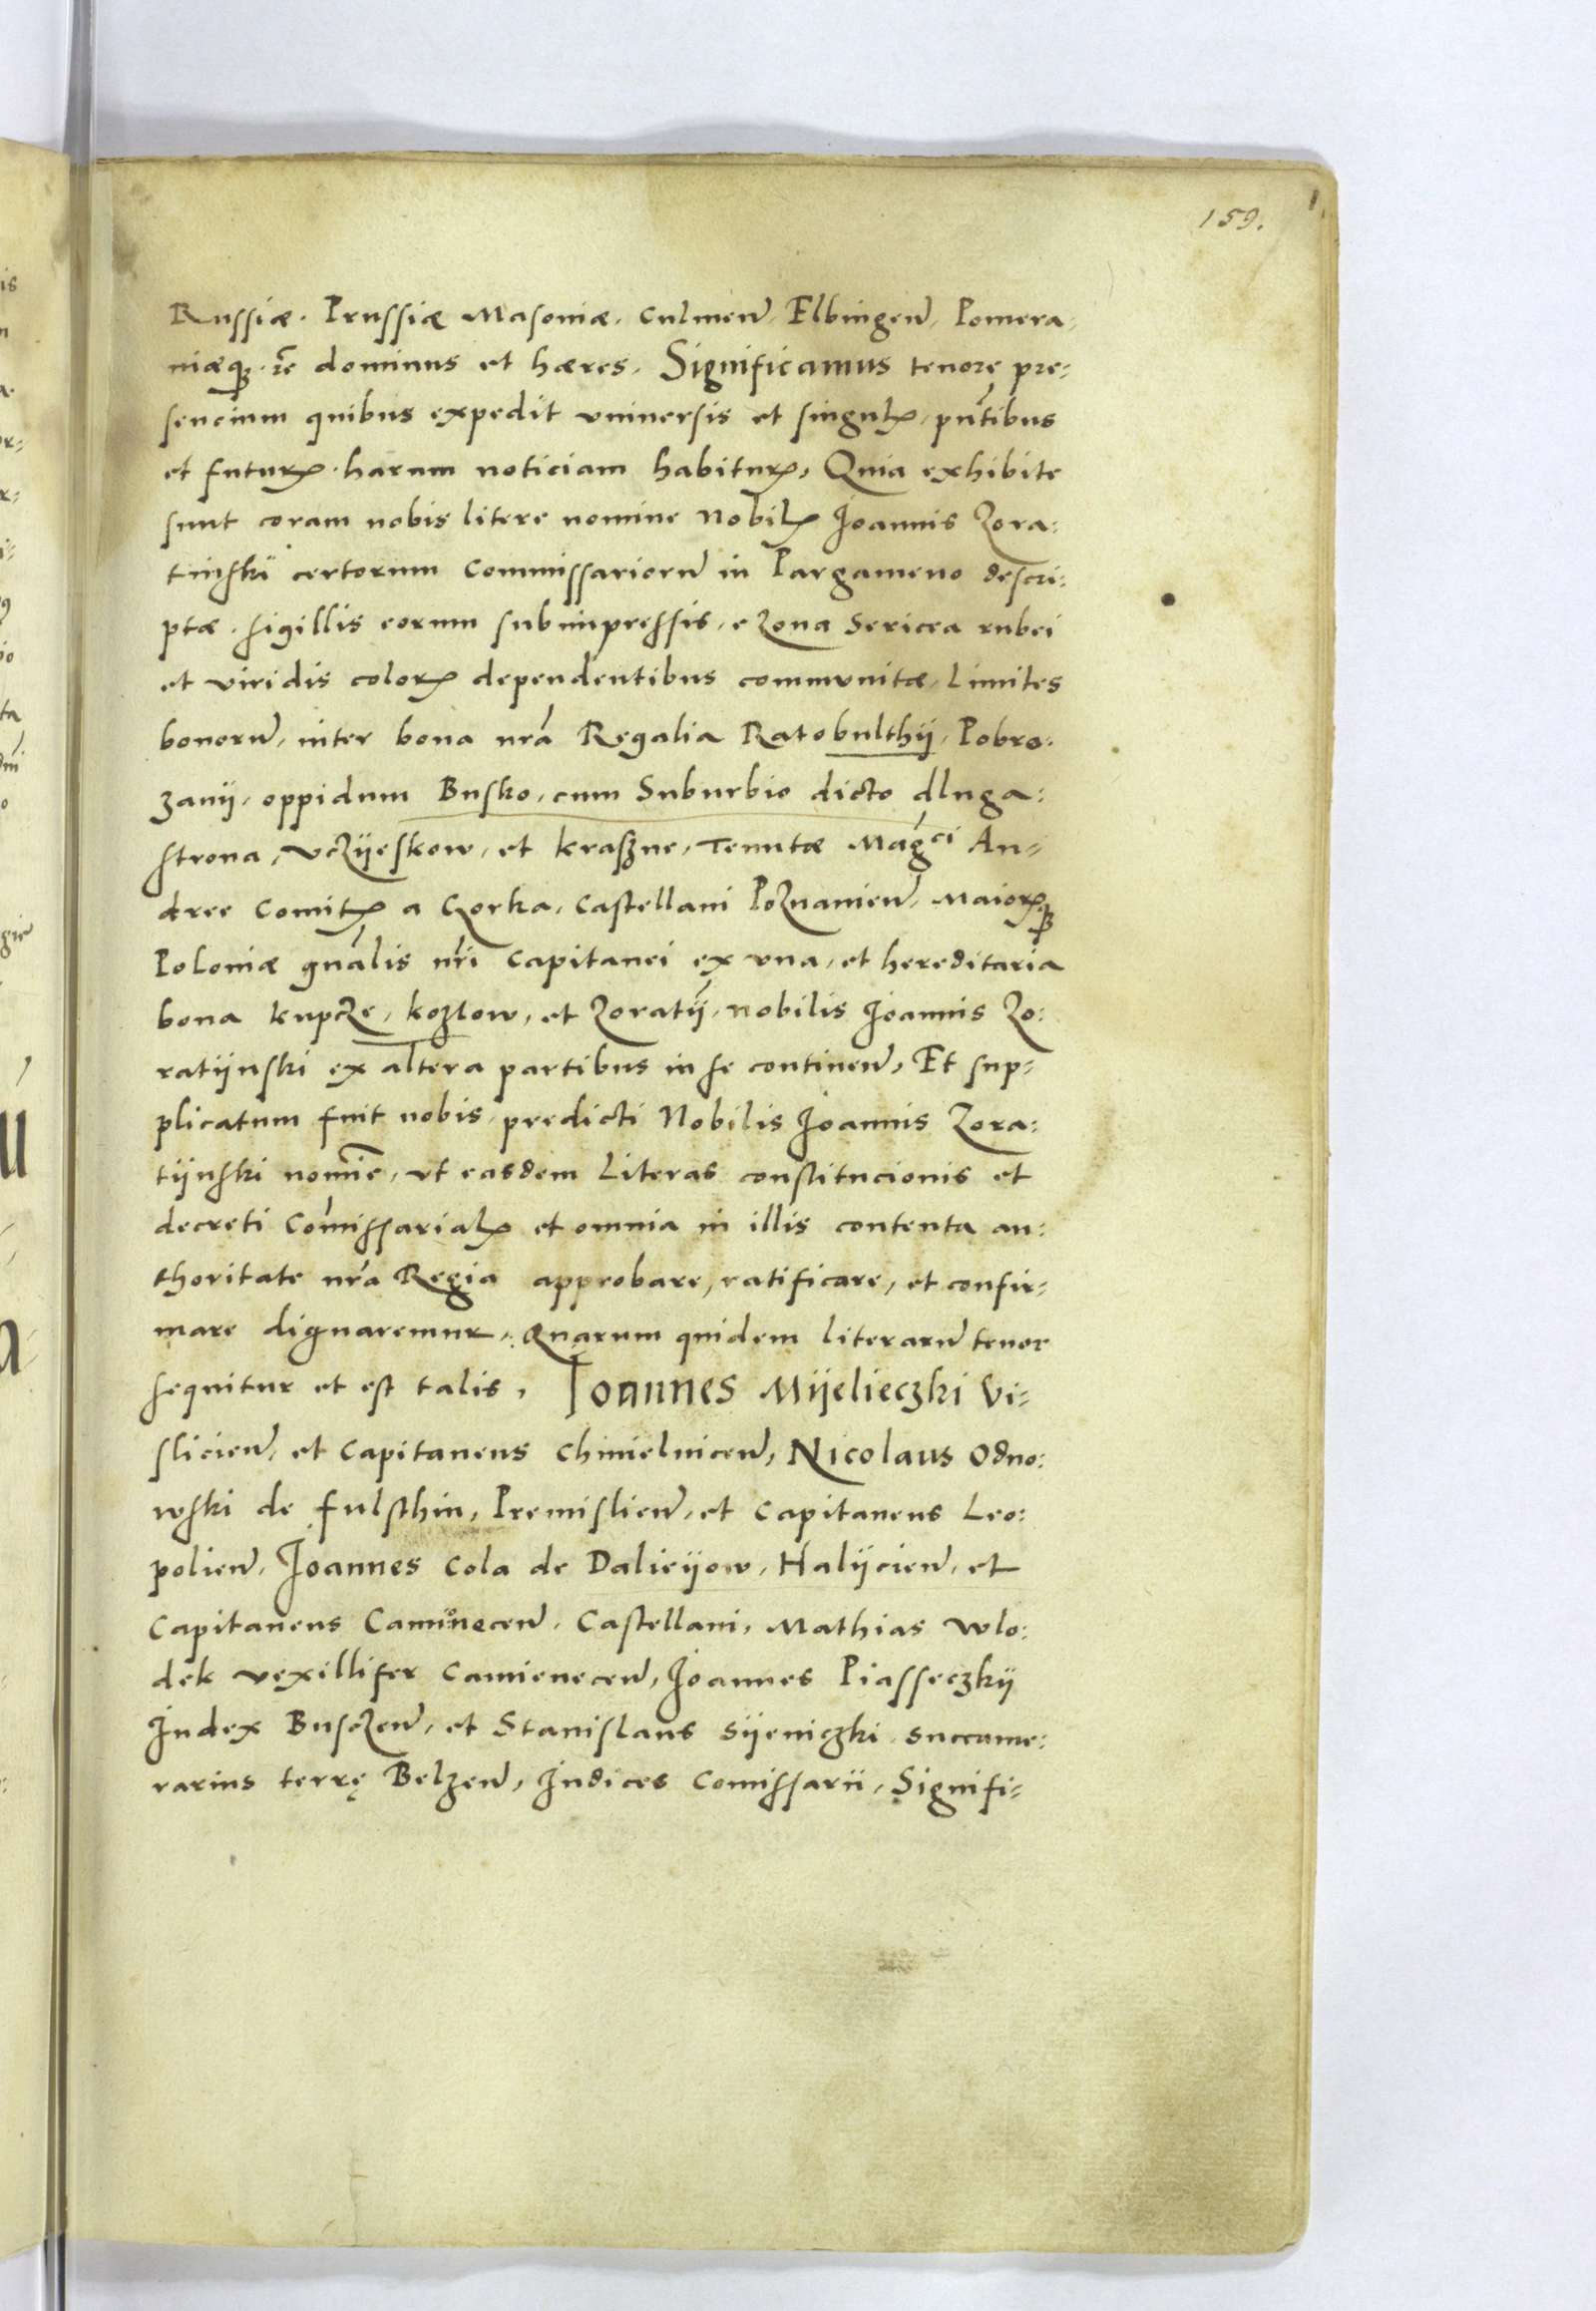 159.
Russiæ. Prussiæ Masoniæ. Culmen̄. Elbingen̄. Pomera:
niæqꝫ. zc̄ dominus et hæres. Significamus tenorę pre:
sencium quibus expedit vniuersis et singulꝭ. pn̄tibus
et futurꝭ. harum noticiam habiturꝭ, Quia exhibite
sunt coram nobis litere nomine Nobilꝭ Joannis Zora:
tinski certorum Commissariorū in Pargameno descri:
ptæ. sigillis eorum subimpressis, e Zona Sericea rubei
et viridis colorꝭ dependentibus communitæ, Limites
bonorū, inter bona nr̄a Regalia Ratobulthij, Pobro:
zanij, oppidum Busko, cum Suburbio dicto dluga:
strona, VcZijeskow, et kraszne, Tenutæ Magci An:
dree Comitꝭ a Gorka, Castellani PoZnanien̄, Maiorꝭqꝫ
Poloniæ gn̄alis nr̄i Capitanei ex vna, et hereditaria
bona kupcZe, kozlow, et Zoratij, nobilis Joannis Zo:
ratijnski ex altera partibus in se continen̄, Et sup:
plicatum fuit nobis, predicti Nobilis Joannis Zora:
tijnski nomīe, vt easdem Literas constitucionis et
decreti Com̄issarialꝭ et omnia in illis contenta au:
thoritate nr̄a Regia approbare, ratificare, et confir:
mare dignaremur, Quarum quidem literarū tenor
sequitur et est talis, Joannes Mijelieczki Vi:
slicien̄, et Capitaneus Chmielnicen̄, Nicolaus Odno:
wski de fulsthin, Premislien̄, et Capitaneus Leo:
polien̄, Joannes Cola de Dalieijow, Halijcien̄, et
Capitaneus Camenecen̄, Castellani, Mathias Wlo:
dek vexillifer Camienecen̄, Joannes Piasseczkij
Judex BuscZen̄, et Stanislaus Sijeniczki Succame:
rarius terrę Belzen̄, Judices Comissarii, Signifi: